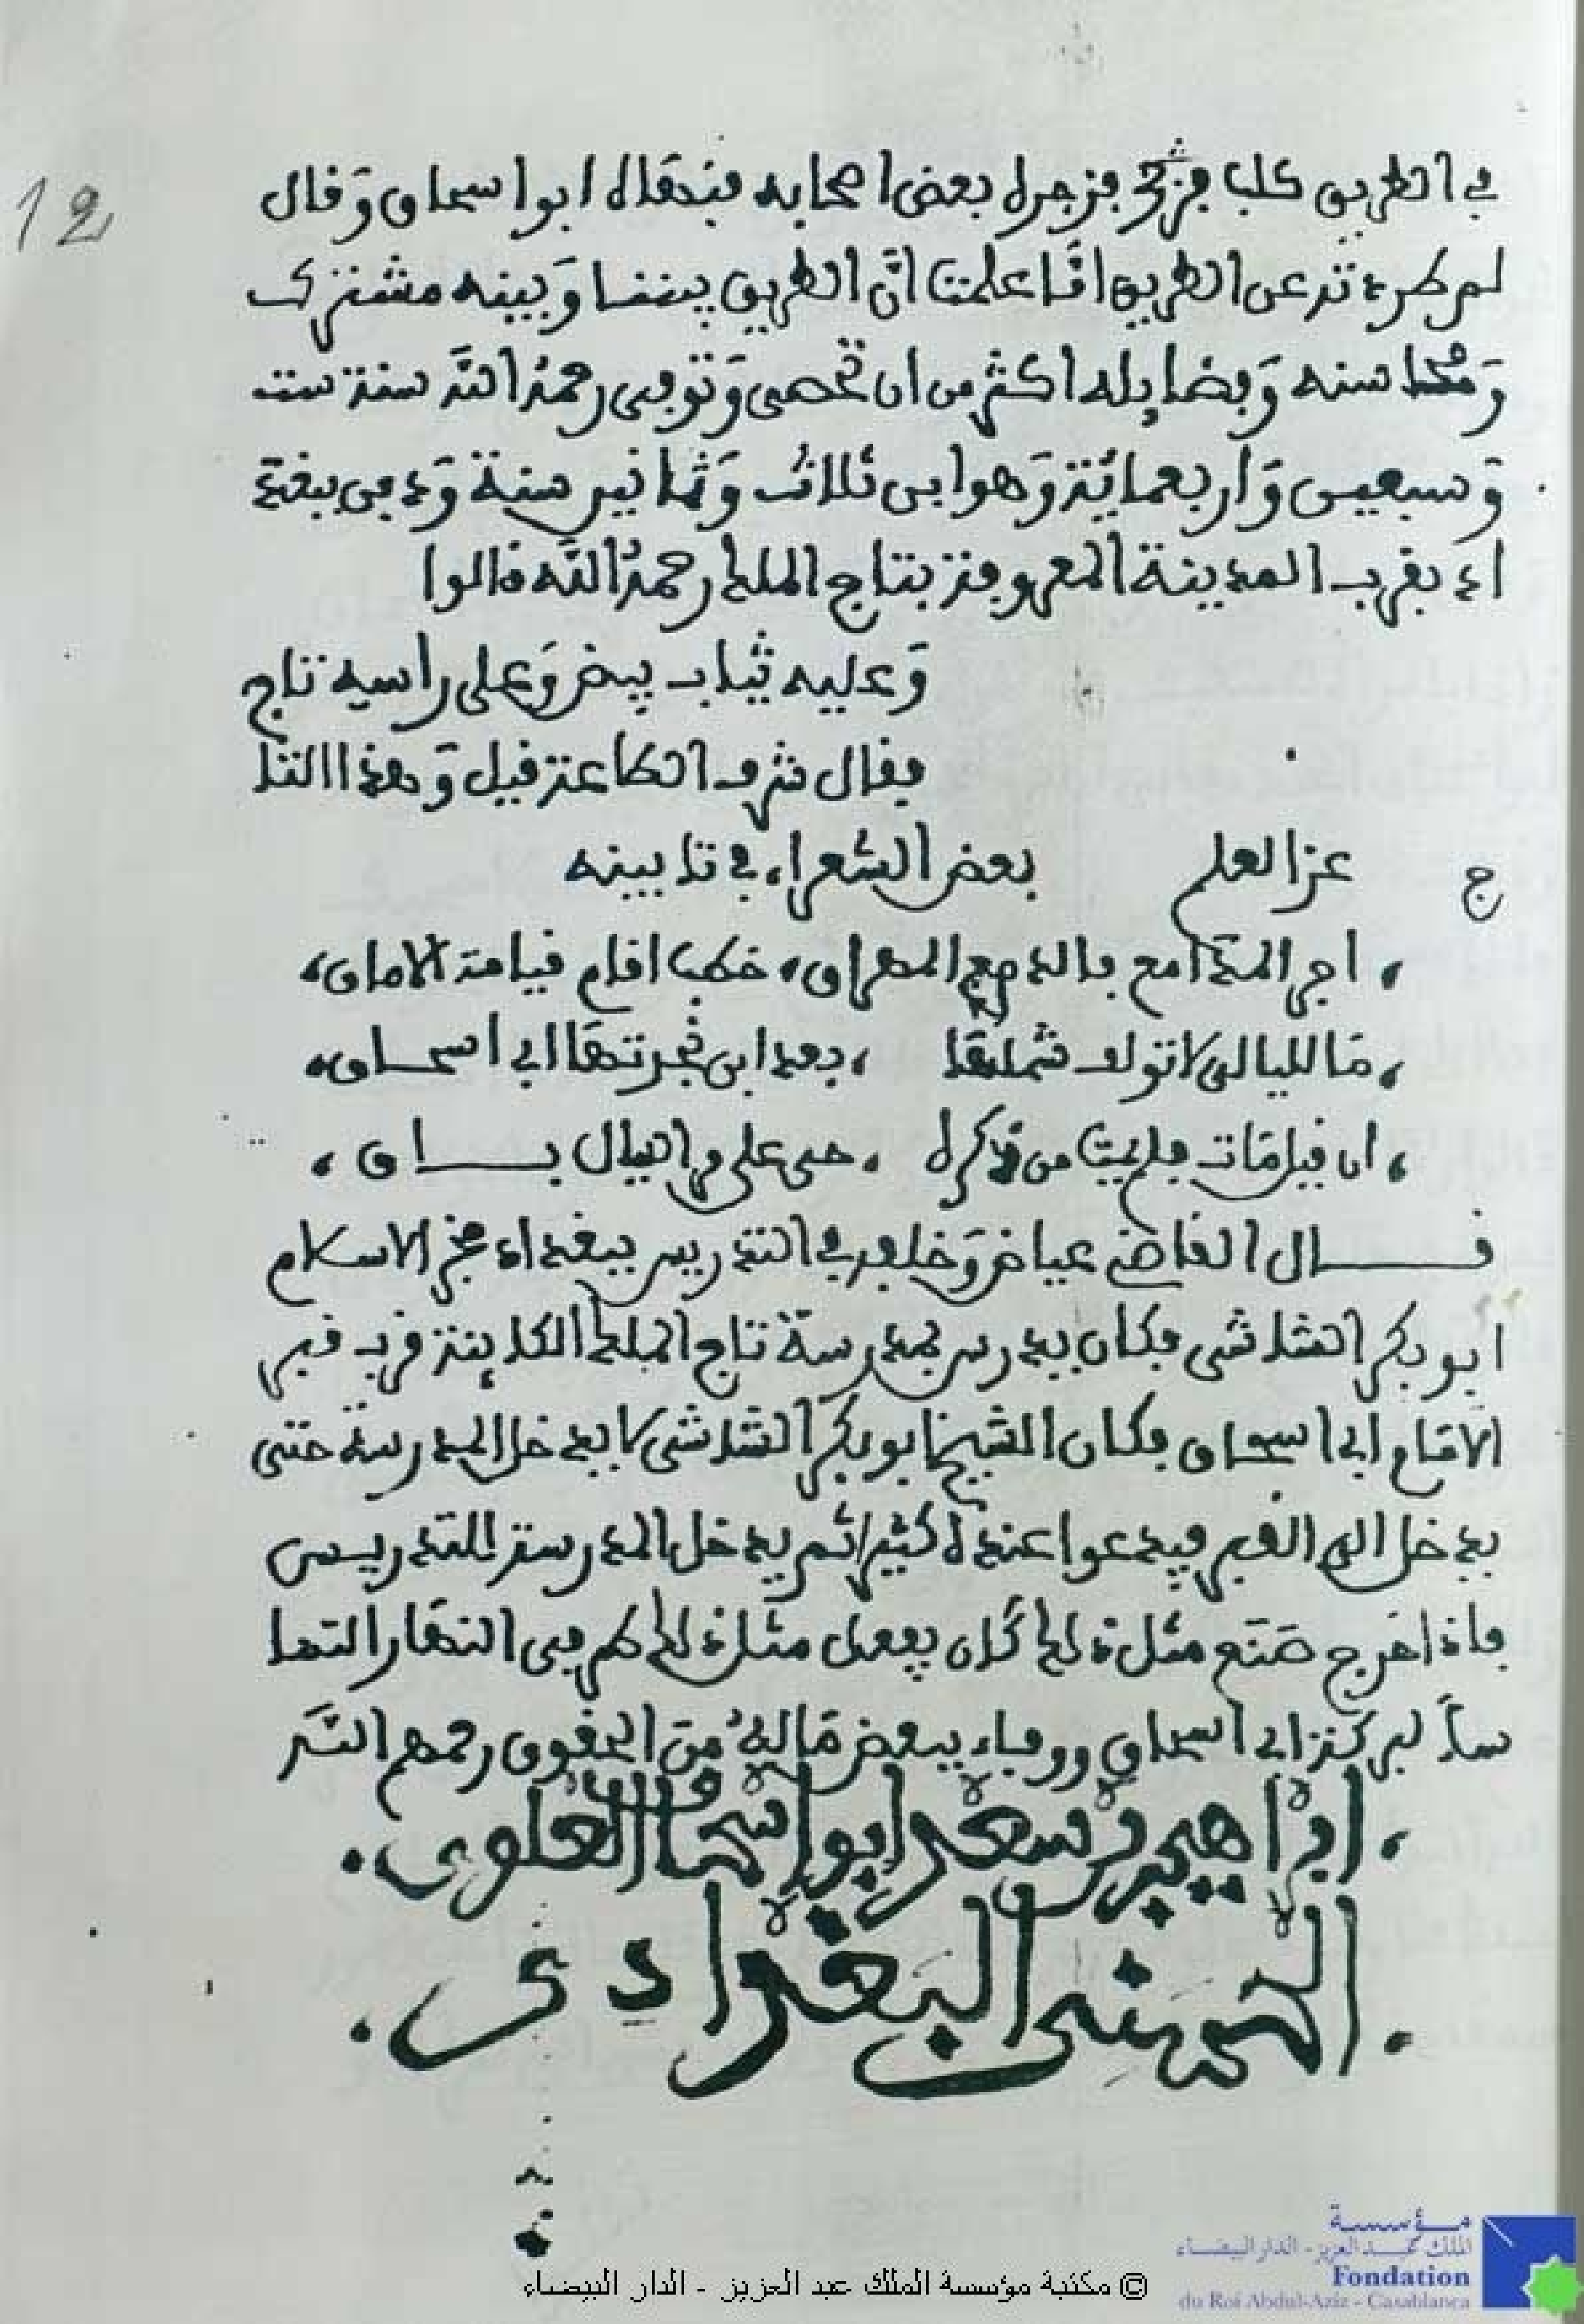 12
في الطريق كلب فزجره بعض اصحابه فنهاه ابو اسحاق وَقال
لم طردته عن الطريق اَمَا علمت اَنَّ الطريق بيننا وَبينه مشترك
وَمحاسنه وَفضايله اكثر من ان تحصى وَتوفى رحمهُ اللَّه سنة ست
وَسبعين وَاربعمائة وَهو ابن ثلاث وَثمانين سنة وَدفن ببغد
اد بقرب المدينة المعروفة بتاج الملك رحمهُ اللَّه قالوا
وَعليه ثياب بيض وَعلى راسه تاج
فقال شرف الطاعة قيل وَهذا التا
ج عز العلم بعض الشعراء في تابينه
، اجرى المدامع بالدم المهراق، خطب اقام قيامة الاماق،
، مَا لليالي لا تولف شملها ، بعد ابن نجدتهَا ابي اسحاق،
، ان قيل مَات فلم يمت من ذكره ، حي على مر الليال باق ،
قال القاضي عياض وَخلفه في التدريس ببغداد فخر الاسلام
ابو بكر الشاشي فكان يدرس بمدرسة تاج الملك الكاينة قرب قبر
الامَام ابي اسحاق فكان الشيخ ابو بكر الشاشي لا يدخل المدرسة حتى
يدخل الى القبر فيدعوا عنده كثيرا ثم يدخل المدرسة للتدريس
فاذا خرج صَنَع مثل ذلك كَان يفعل مثل ذلك طرفي النهَار التما
ساً لبركة ابي اسحاق ووفاء ببعض مَا لهُ منَ الحقوق رحمهم اللَّه
، ابراهيم بن سعد ابو اسحاق العلوى .
. الحسنى البغدادى .
© مكتبة مؤسسة الملك عبد العزيز - الدار البيضاء
مؤسسة
الملك عبد العزيز - الدار البيضاء
Fondation
du Roi Abdul-Aziz - Casablanca